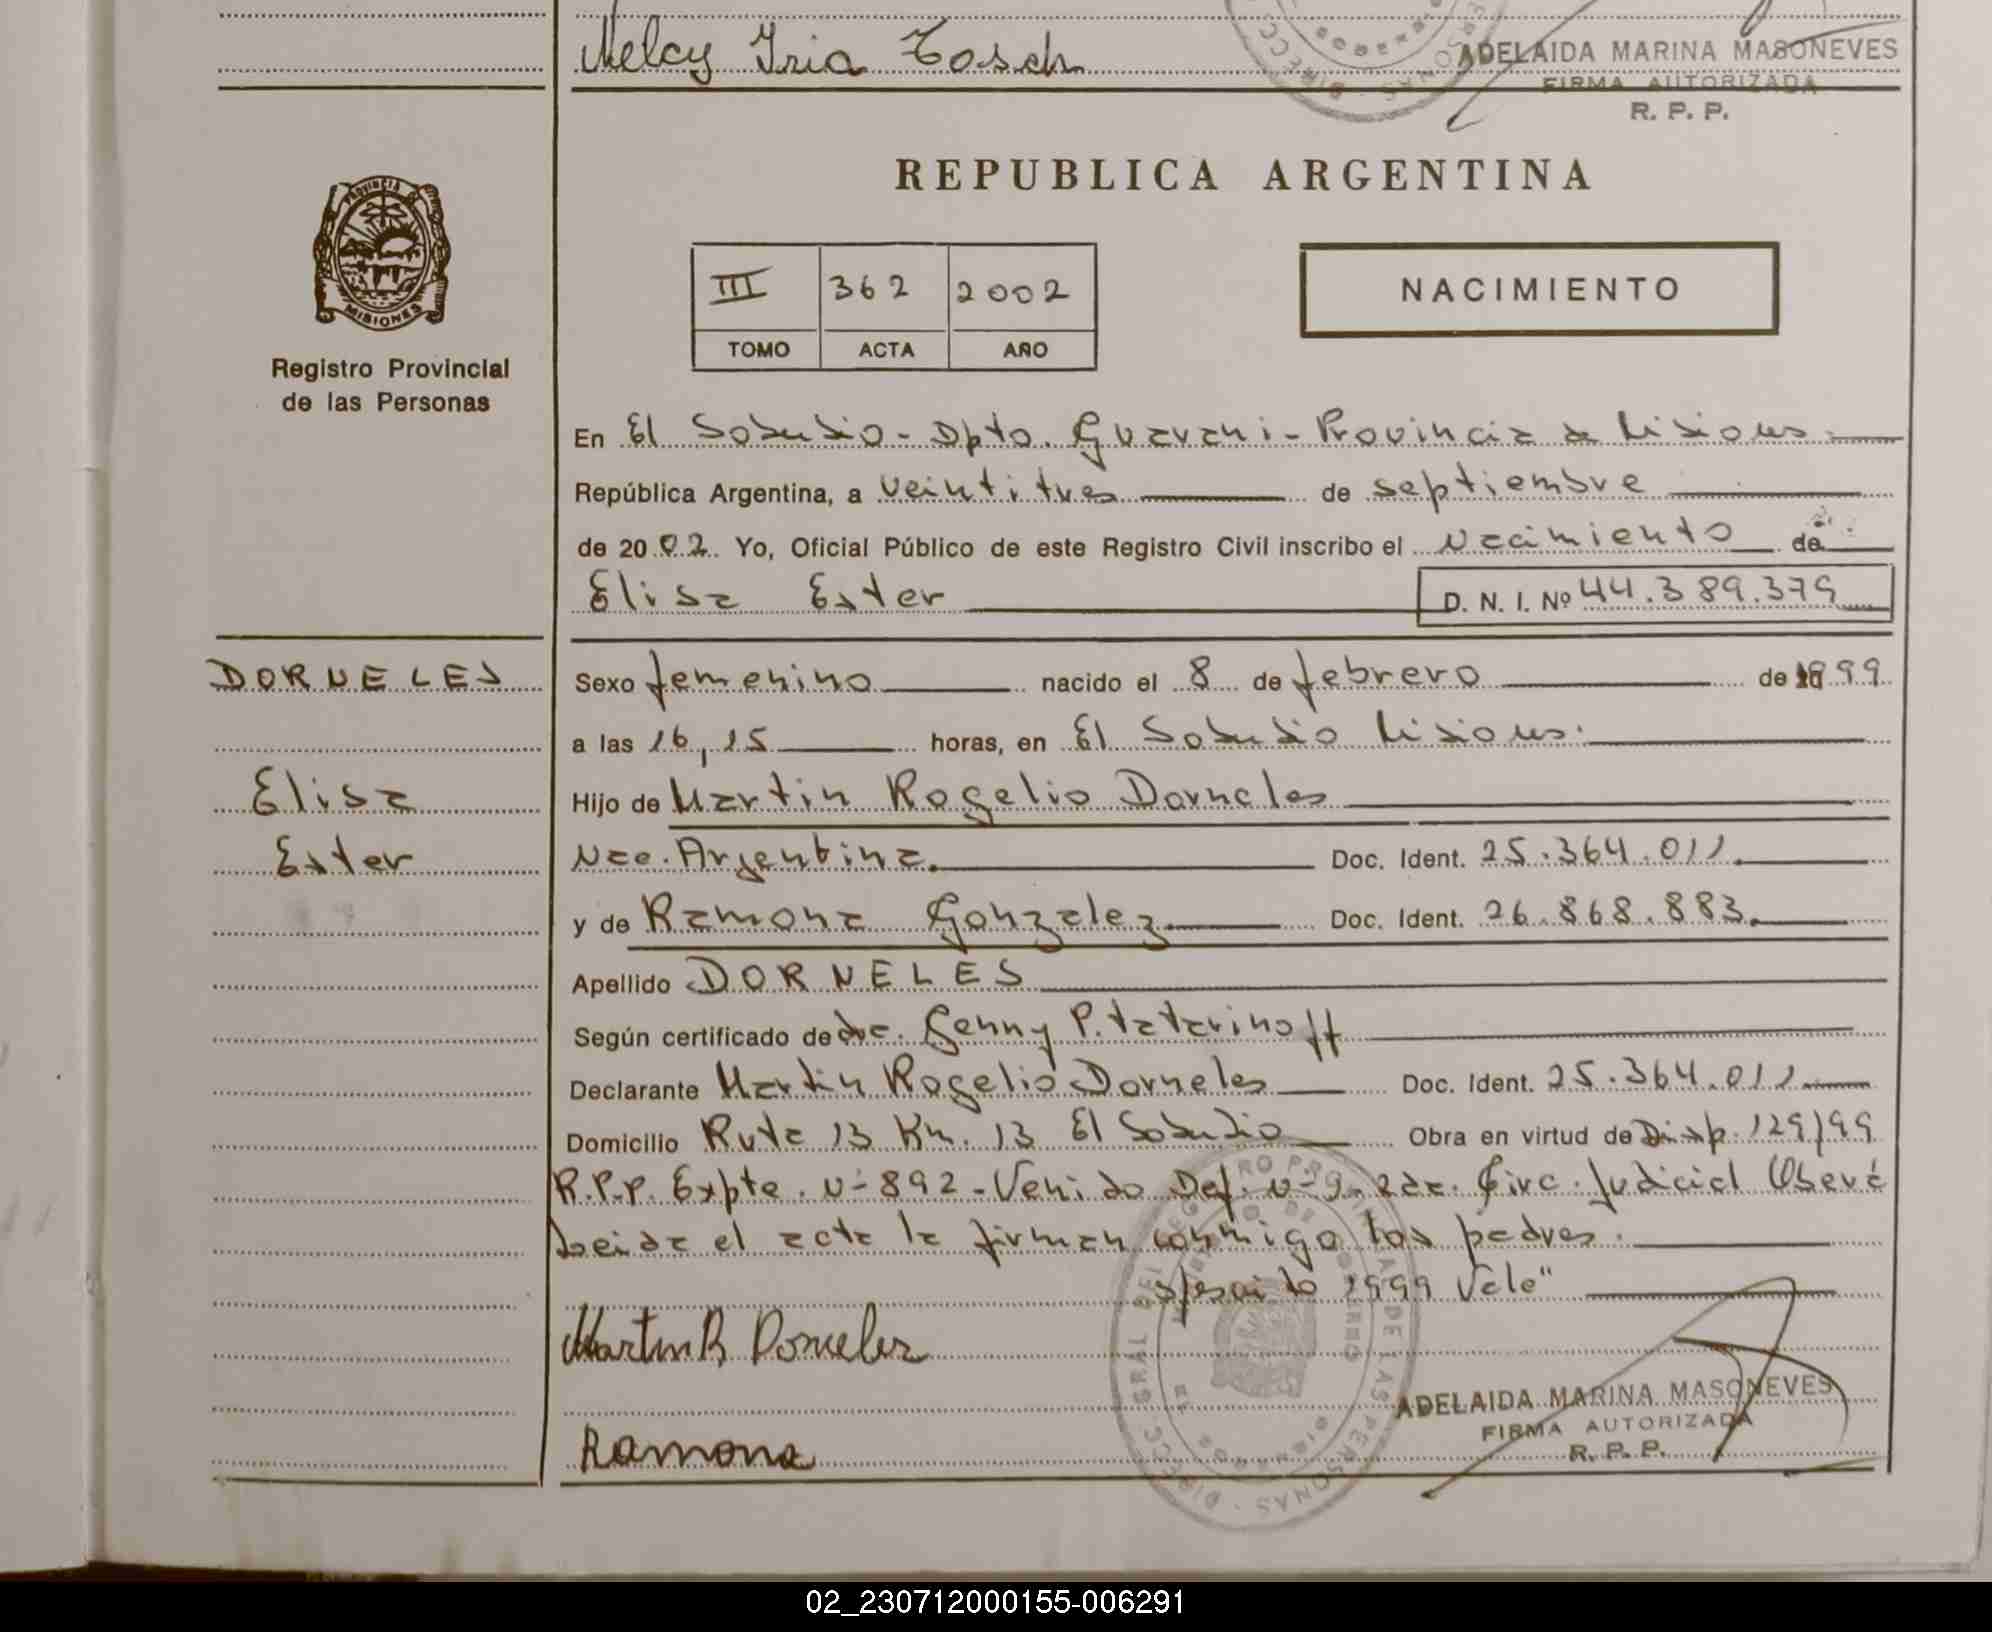 Nelcy Iria Tosch
ADELAIDA MARINA MASONEVES
FIRMA AUTORIZADA
R. P. P.
REPUBLICA ARGENTINA
PROVINCIA
MISIONES
III 362 2002
TOMO ACTA AÑO
NACIMIENTO
Registro Provincial
de las Personas
En El Soberbio - Dpto. Guarani - Provincia de Misiones.
República Argentina, a veintitres de septiembre
de 2002. Yo, Oficial Público de este Registro Civil inscribo el Nacimiento de
Elisa Ester D. N. I. Nº 44.389.379
DORNELES
Elisa
Ester
Sexo femenino nacido el 8 de febrero de 1999
a las 16,15 horas, en El Soberbio Misiones.
Hijo de Martin Rogelio Dorneles
Nac. Argentina. Doc. Ident. 25.364.011
y de Ramona Gonzalez Doc. Ident. 26.868.883.
Apellido DORNELES
Según certificado de doc. Genny P. Tatarinoff
Declarante Martin Rogelio Dorneles Doc. Ident. 25.364.011
Domicilio Ruta 13 Km. 13 El Soberbio Obra en virtud de Disp. 129/99
R.P.P. Expte. Nº 892 - Venido Def. Nº 9 - 2da. Circ. Judicial Oberá
Leida el acta la firman conmigo los padres.
s/raspado 1999 Vale"
Martin R Dorneles
Ramona
ADELAIDA MARINA MASONEVES
FIRMA AUTORIZADA
R. P. P.
DIRECC. GRAL DEL REGISTRO PROVINCIAL DE LAS PERSONAS
02_230712000155-006291